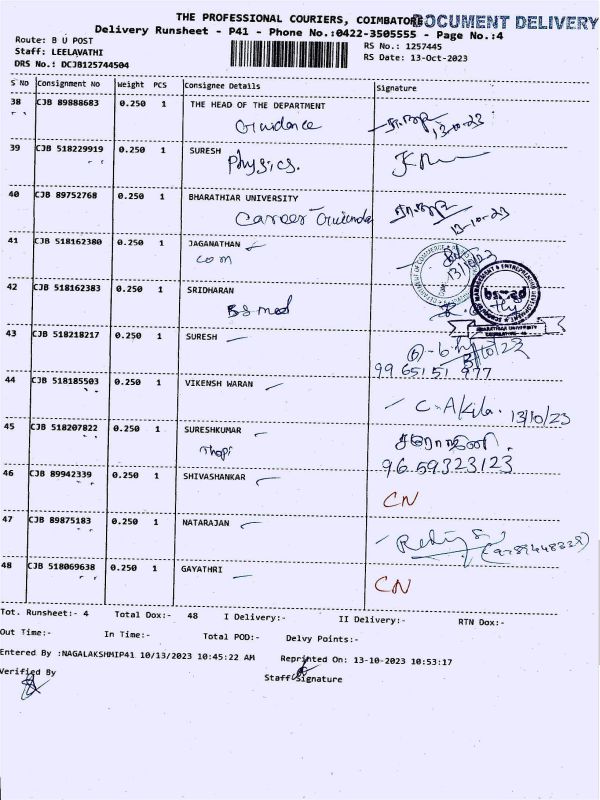 THE PROFESSIONAL COURIERS, COIMBATORE
DOCUMENT DELIVERY
Delivery Runsheet - P41 - Phone No.:0422-3505555 - Page No.:4
Route: B U POST
Staff: LEELAVATHI
DRS No.: DCJB125744504
RS No.: 1257445
RS Date: 13-Oct-2023
S No Consignment No Weight PCS Consignee Details Signature
38 CJB 89888683 0.250 1 THE HEAD OF THE DEPARTMENT
Guidance 13-10-23
39 CJB 518229919 0.250 1 SURESH
Physics.
40 CJB 89752768 0.250 1 BHARATHIAR UNIVERSITY
Career Guidance 13-10-23
41 CJB 518162380 0.250 1 JAGANATHAN
com
42 CJB 518162383 0.250 1 SRIDHARAN
Bsmed bsmed
BHARATHIAR UNIVERSITY
43 CJB 518218217 0.250 1 SURESH
13/10/23
99 65151 977
44 CJB 518185503 0.250 1 VIKENSH WARAN
C. Akila. 13/10/23
45 CJB 518207822 0.250 1 SURESHKUMAR
சரோஜினி.
9659323123
46 CJB 89942339 0.250 1 SHIVASHANKAR
CN
47 CJB 89875183 0.250 1 NATARAJAN
48 CJB 518069638 0.250 1 GAYATHRI
CN
Tot. Runsheet:- 4 Total Dox:- 48 I Delivery:- II Delivery:- RTN Dox:-
Out Time:- In Time:- Total POD:- Delvy Points:-
Entered By :NAGALAKSHMIP41 10/13/2023 10:45:22 AM Reprinted On: 13-10-2023 10:53:17
Verified By Staff Signature